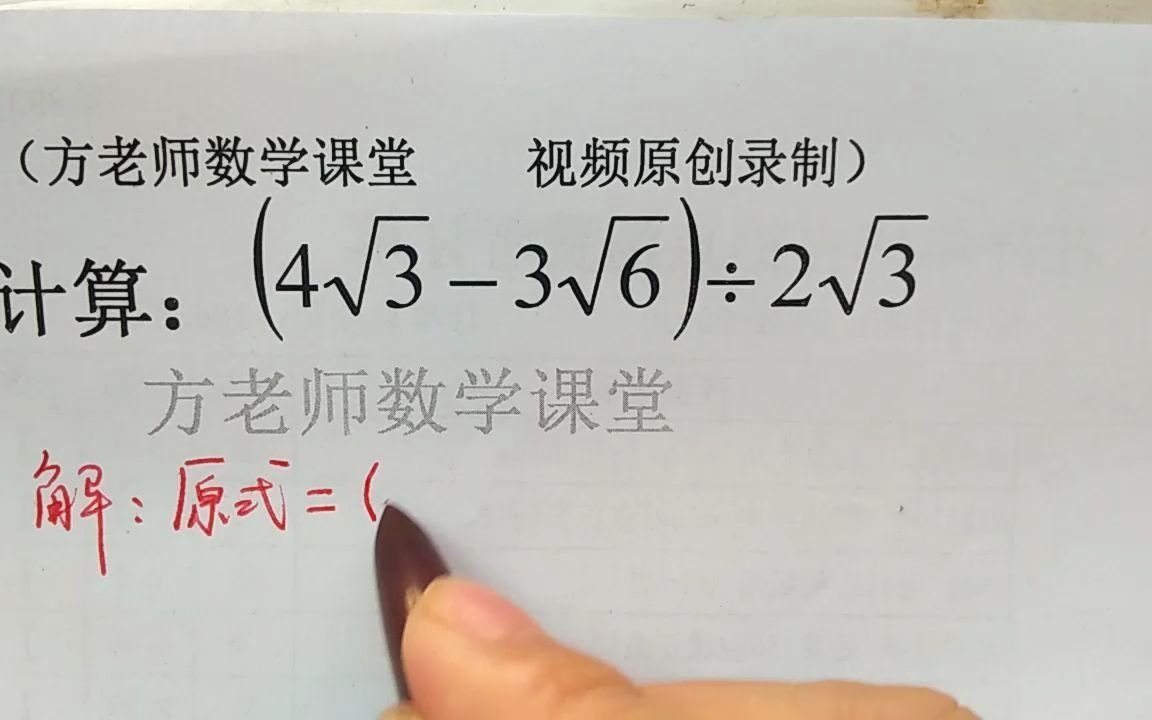 （方老师数学课堂　　视频原创录制）
计算：(4√3－3√6)÷2√3
方老师数学课堂
解：原式＝(